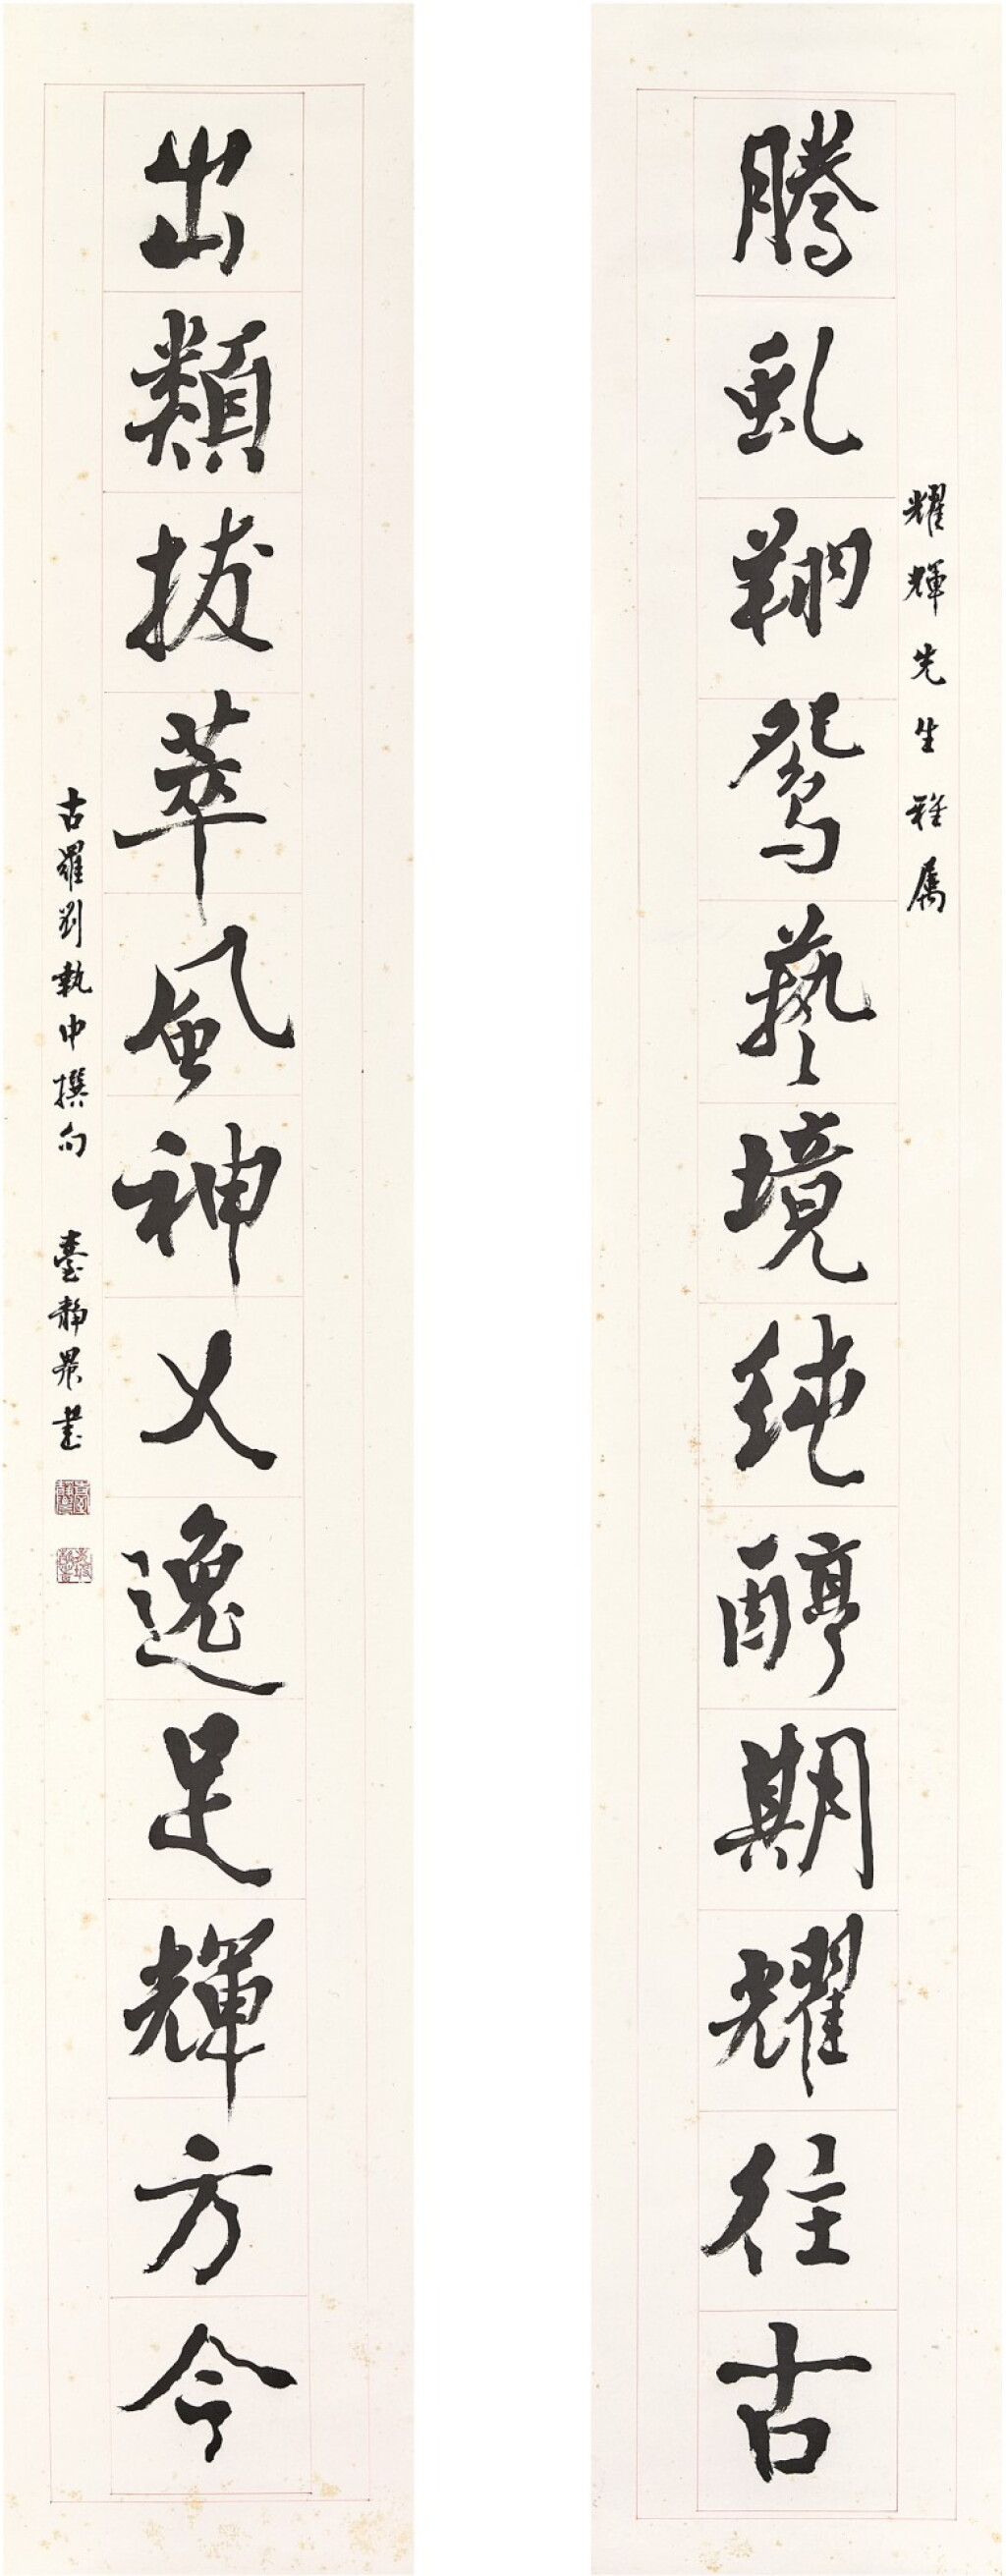 耀輝先生雅属
騰虬翔鴛藝境純醇期耀往古
出類拔萃風神乂逸足輝方今
古羅劉執中撰句 臺靜農書